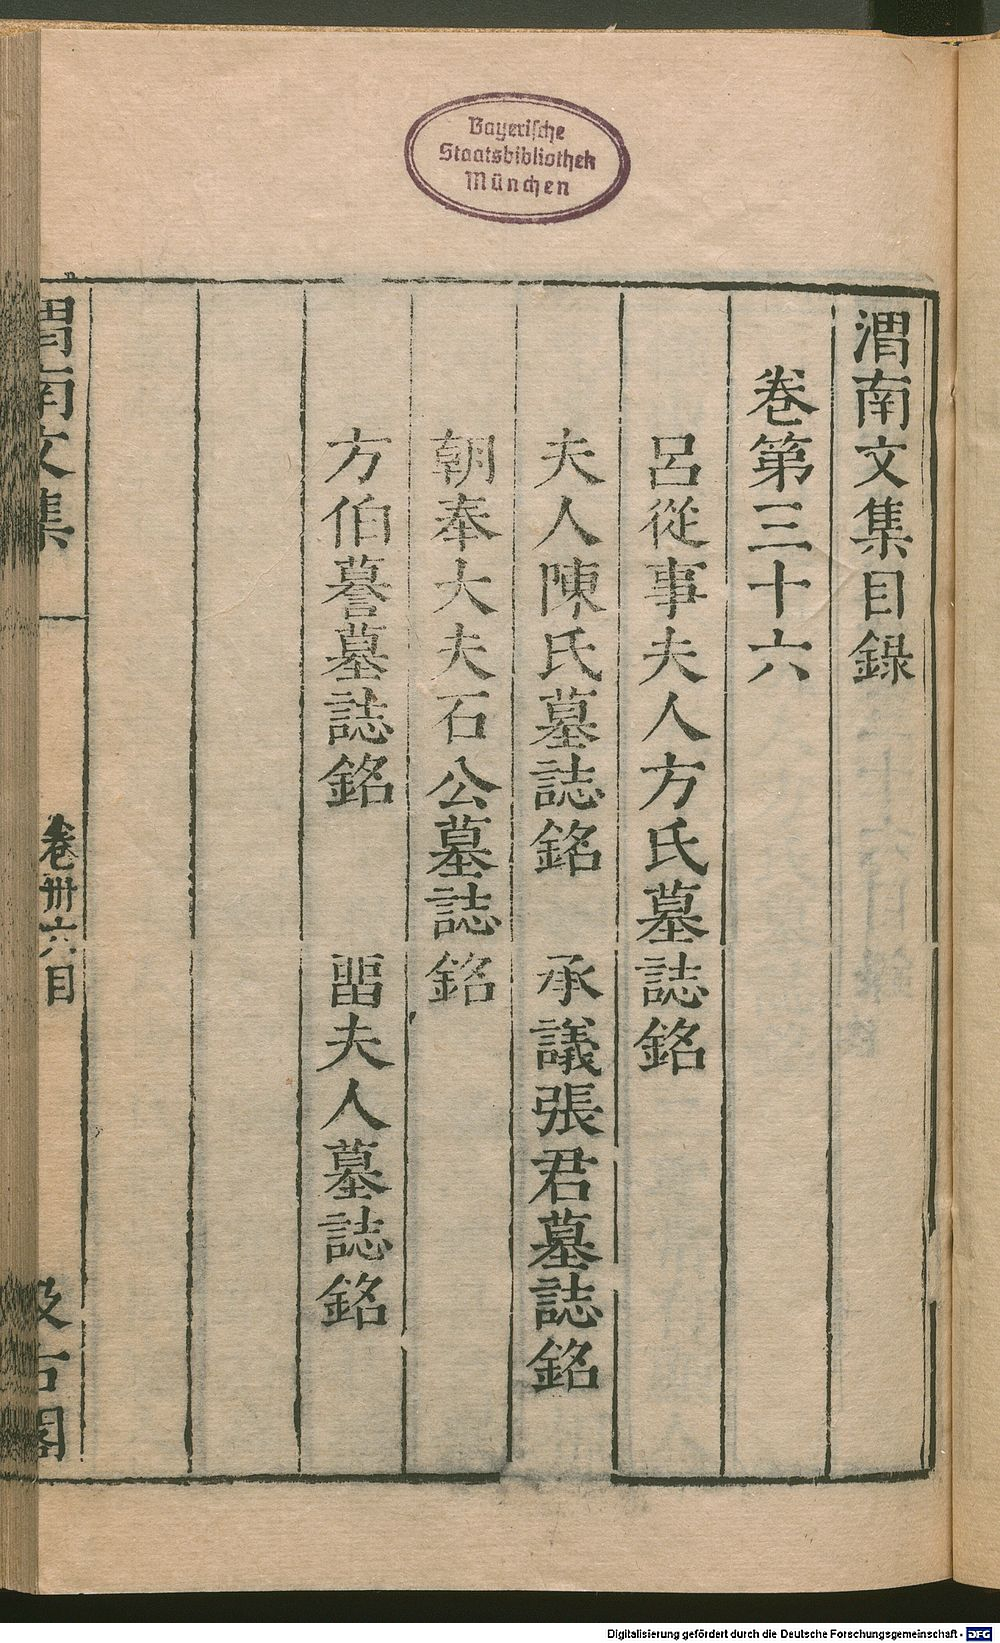 Bayerische
Staatsbibliothek
München
渭南文集目錄
卷第三十六
呂從事夫人方氏墓誌銘
夫人陳氏墓誌銘 承議張君墓誌銘
朝奉大夫石公墓誌銘
方伯謩墓誌銘 畱夫人墓誌銘
渭南文集
卷卅六目
汲古閣
Digitalisierung gefördert durch die Deutsche Forschungsgemeinschaft - DFG